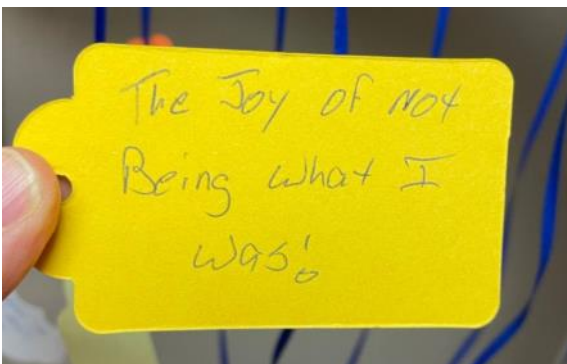 The Joy of Not
Being what I
was!